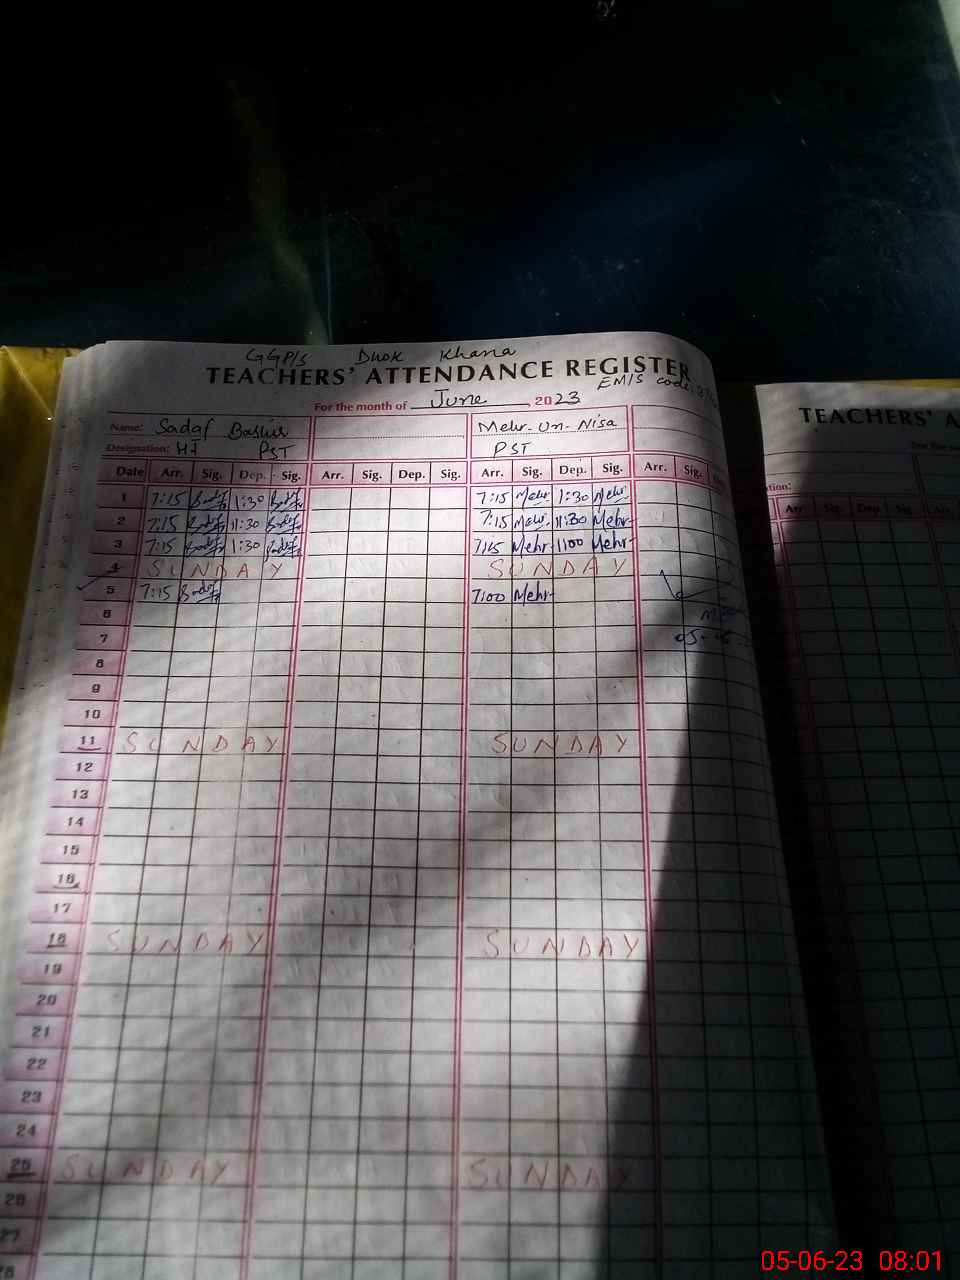 GGP/s Dhok Khana
TEACHERS' ATTENDANCE REGISTER
EMIS code
For the month of June 2023
Name: Sadaf Bashir Mehr-Un-Nisa
Designation: HT PST PST
Date Arr. Sig. Dep. Sig. Arr. Sig. Dep. Sig. Arr. Sig. Dep. Sig. Arr. Sig.
1 7:15 Sadaf 1:30 Sadaf 7:15 Mehr 1:30 Mehr
2 7:15 Sadaf 11:30 Sadaf 7:15 Mehr 11:30 Mehr
3 7:15 Sadaf 1:30 Sadaf 7:15 Mehr 1:00 Mehr
4 SUNDAY SUNDAY
5 7:15 Sadaf 7:00 Mehr
6
7 05-06
8
9
10
11 SUNDAY SUNDAY
12
13
14
15
16
17
18 SUNDAY SUNDAY
19
20
21
22
23
24
25 SUNDAY SUNDAY
26
27
28
TEACHERS' A
tion:
Arr. Sig. Dep. Sig. Arr.
05-06-23 08:01